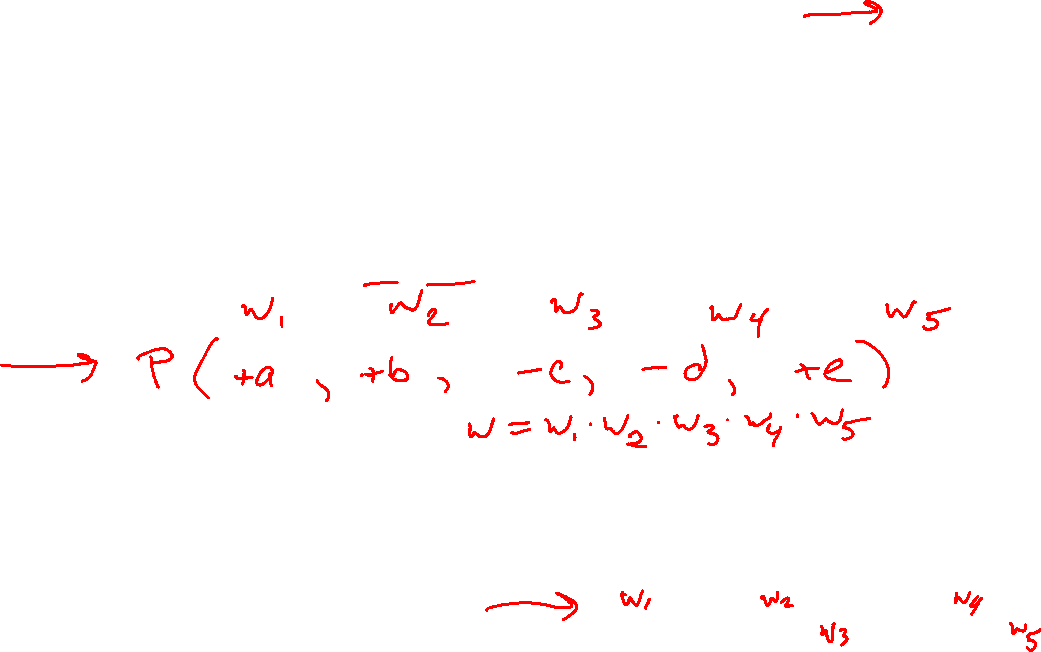 →
w₁ w₂ w₃ w₄ w₅
→ P(+a, +b, -c, -d, +e)
w = w₁ · w₂ · w₃ · w₄ · w₅
→ w₁ w₂ w₄
w₃ w₅